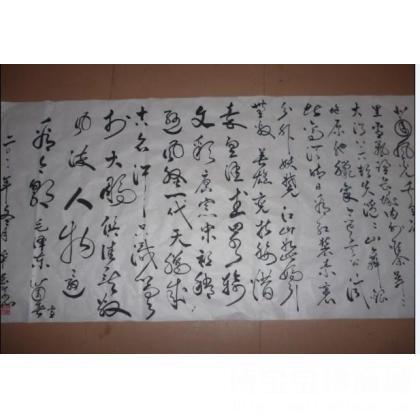 北国风光千里冰封万
里雪飘望长城内外惟余莽莽
大河上下顿失滔滔山舞银
蛇原驰蜡象欲与天公试
比高须晴日看红装素裹
分外妖娆江山如此多娇引
无数英雄竞折腰惜
秦皇汉武略输
文彩唐宗宋祖稍
逊风骚一代天骄成
吉思汗只识弯
弓射大雕俱往矣数
风流人物还
看今朝 毛泽东